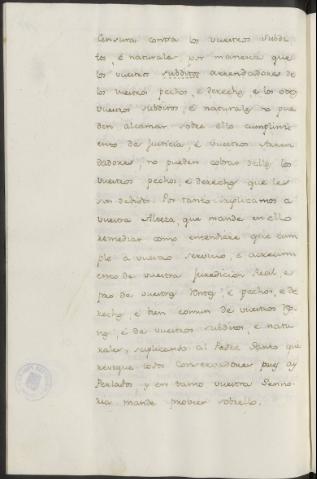 censura contra los vuestros subdi
tos, é naturales por manera que
los vuestros subditos arrendadores de
los vuestros pechos, é derechos, é los otros
vuestros subditos, é naturales no pue
den alcanzar sobre ello cumplimi
ento de Justicia, é vuestros Arren
dadores, no pueden cobrar dellos los
vuestros pechos, é derechos que les
son debidos. Por tanto suplicamos a
vuestra Alteza, que mande en ello
remediar como entendiere que cum
ple a vuestro servicio, é acrecimi
ento de vuestra Juredicion Real, é
pro de vuestras rentas, é pechos, é de
rechos, é bien comun de vuestros Rey
nos, é de vuestros subditos, é natu
rales, suplicando al Padre Santo que
revoque todos Conservadores pues ay
Perlados, y en tanto vuestra Senno
ria mande proveer sobrello.